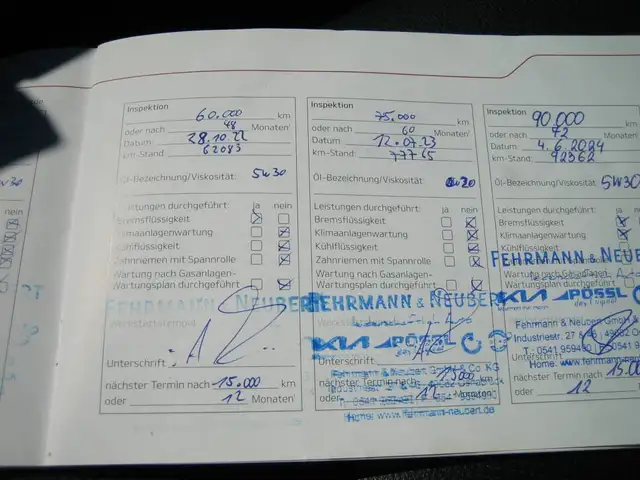 Inspektion
60.000 km
oder nach 48 Monaten
Datum 28.10.22
km-Stand: 62083
Öl-Bezeichnung/Viskosität: 5W30
Leistungen durchgeführt: ja nein
Bremsflüssigkeit
Klimaanlagenwartung
Kühlflüssigkeit
Zahnriemen mit Spannrolle
Wartung nach Gasanlagen-
Wartungsplan durchgeführt
FEHRMANN & NEUBERT
Unterschrift
nächster Termin nach 15.000 km
oder 12 Monaten
Inspektion
75.000 km
oder nach 60 Monaten
Datum 12.07.23
km-Stand:
Öl-Bezeichnung/Viskosität:
Leistungen durchgeführt: ja nein
Bremsflüssigkeit
Klimaanlagenwartung
Kühlflüssigkeit
Zahnriemen mit Spannrolle
Wartung nach Gasanlagen-
Wartungsplan durchgeführt
FEHRMANN & NEUBERT
KIA PÖSSL
Unterschrift
Fehrmann & Neubert GmbH & Co KG
nächster Termin nach 15000 km
oder 12 Monaten
Home: www.fehrmann-neubert.de
Inspektion
90.000
oder nach 72
Datum: 4.6.2024
km-Stand: 92562
Öl-Bezeichnung/Viskosität: 5W30
Leistungen durchgeführt:
Bremsflüssigkeit
Klimaanlagenwartung
Kühlflüssigkeit
FEHRMANN & NEUB
Wartungsplan durchgeführt
KIA PÖSSL
Fehrmann & Neubert GmbH &
Industriestr. 27
Unterschrift
Home: www.fehrmann
nächster Termin nach 15.00
oder 12